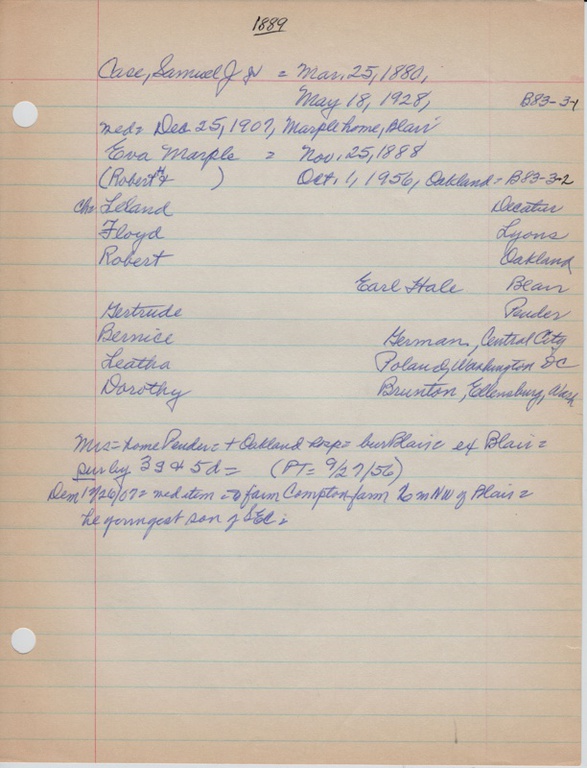 1889
Case, Samuel J Jr = Mar. 25, 1880,
May 18, 1928, B83-3-1
med= Dec. 25, 1907, Marple home, Blair
Eva Marple = Nov. 25, 1888
(Robert + ) Oct. 1, 1956, Oakland = B83-3-2
Ch: Leland Decatur
Floyd Lyons
Robert Oakland
Earl Hale Blair
Gertrude Pender
Bernice German, Central City
Leatha Poland, Washington DC
Dorothy Brunton, Ellensburg, Wash
Mrs= home Pender= + Oakland hosp= bur Blair= ex Blair=
sur by 3s + 5d= (PT= 9/27/56)
Dem 12/26/07= med item = to farm Compton farm mi NW of Blair=
he youngest son of SEC=